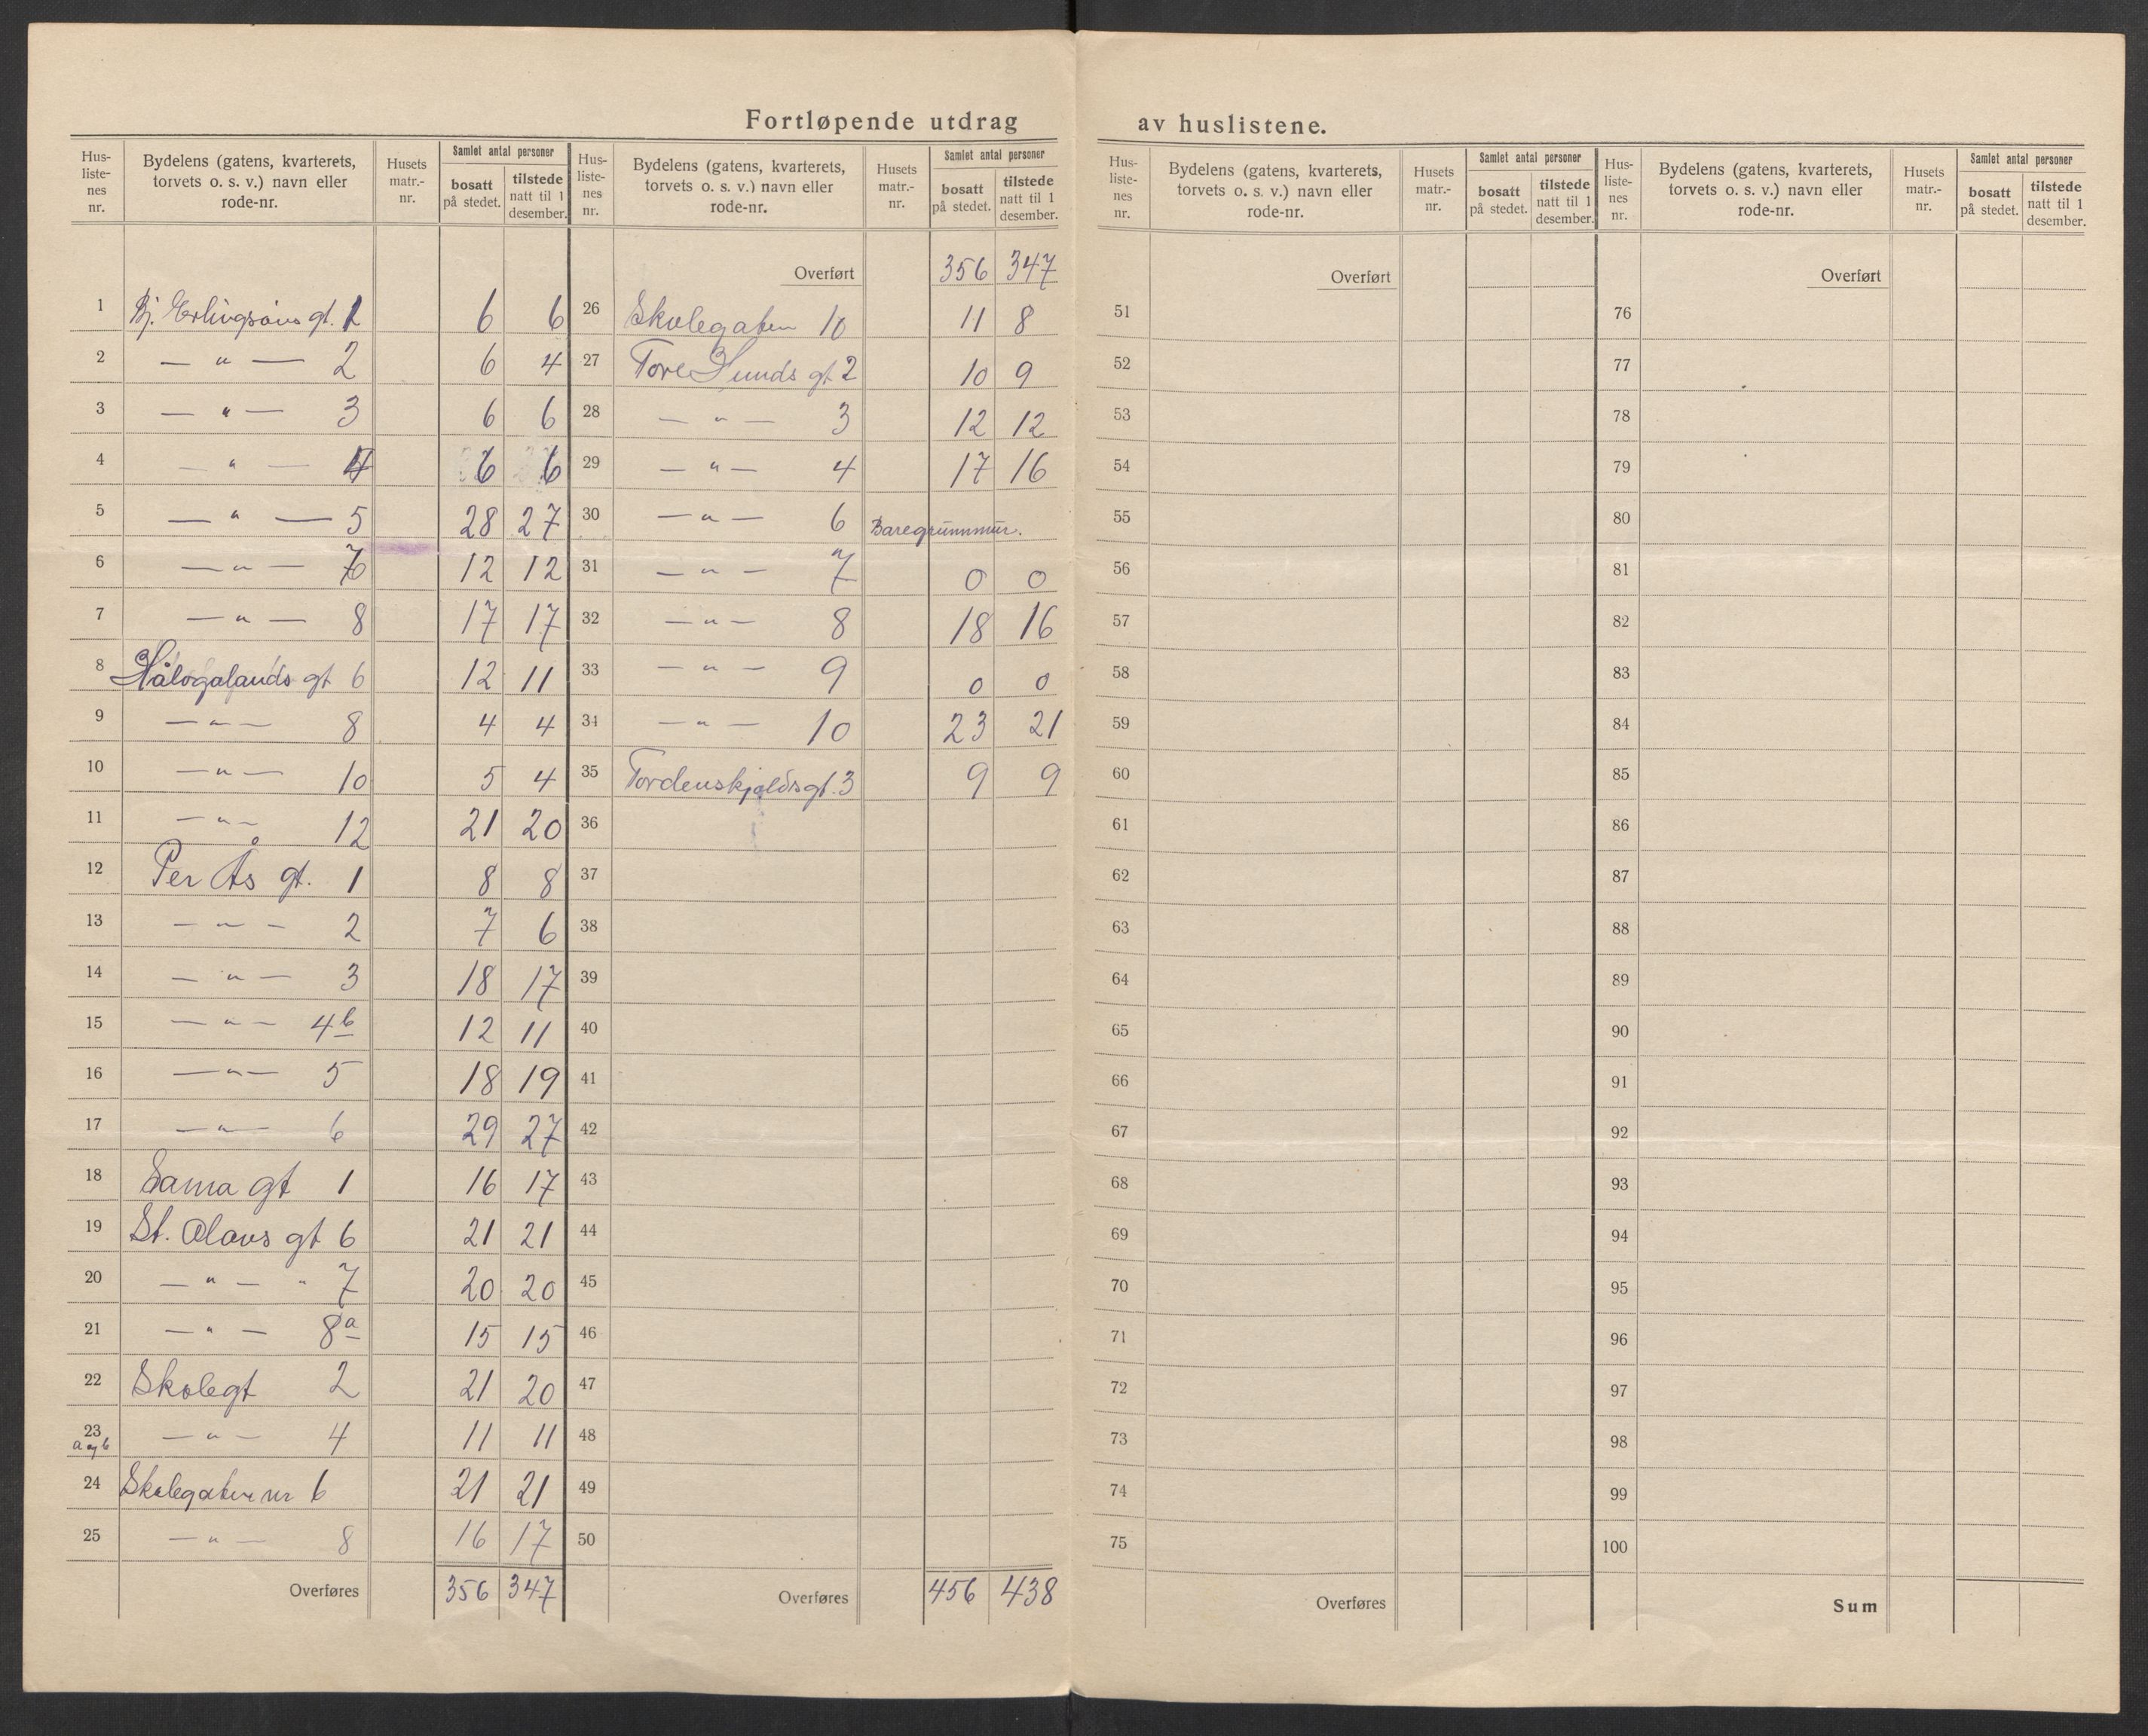 Fortløpende utdrag av huslistene.
Hus-liste-nes nr. | Bydelens (gatens, kvarterets, torvets o. s. v.) navn eller rode-nr. | Husets matr.-nr. | Samlet antal personer bosatt på stedet. | tilstede natt til 1 desember.
1 Bj. Erlingsøns gt. 1 6 6
2 — " — 2 6 4
3 — " — 3 6 6
4 — " — 4 6 6
5 — " — 5 28 27
6 — " — 7 12 12
7 — " — 8 17 17
8 Hålogalands gt 6 12 11
9 — " — 8 4 4
10 — " — 10 5 4
11 — " — 12 21 20
12 Per Ås gt. 1 8 8
13 — " — 2 7 6
14 — " — 3 18 17
15 — " — 4b 12 11
16 — " — 5 18 19
17 — " — 6 29 27
18 Sama gt 1 16 17
19 St. Olavs gt 6 21 21
20 — " — " 7 20 20
21 — " — 8a 15 15
22 Skolegt 2 21 20
23 a og b — " — 4 11 11
24 Skolegaten nr 6 21 21
25 — " — 8 16 17
Overføres 356 347
Hus-liste-nes nr. | Bydelens (gatens, kvarterets, torvets o. s. v.) navn eller rode-nr. | Husets matr.-nr. | Samlet antal personer bosatt på stedet. | tilstede natt til 1 desember.
Overført 356 347
26 Skolegaten 10 11 8
27 Tore Hunds gt 2 10 9
28 — " — 3 12 12
29 — " — 4 17 16
30 — " — 6 Bare grunnmur.
31 — " — 7 0 0
32 — " — 8 18 16
33 — " — 9 0 0
34 — " — 10 23 21
35 Tordenskjoldsgt. 3 9 9
36
37
38
39
40
41
42
43
44
45
46
47
48
49
50
Overføres 456 438
Hus-liste-nes nr. | Bydelens (gatens, kvarterets, torvets o. s. v.) navn eller rode-nr. | Husets matr.-nr. | Samlet antal personer bosatt på stedet. | tilstede natt til 1 desember.
Overført
51
52
53
54
55
56
57
58
59
60
61
62
63
64
65
66
67
68
69
70
71
72
73
74
75
Overføres
Hus-liste-nes nr. | Bydelens (gatens, kvarterets, torvets o. s. v.) navn eller rode-nr. | Husets matr.-nr. | Samlet antal personer bosatt på stedet. | tilstede natt til 1 desember.
Overført
76
77
78
79
80
81
82
83
84
85
86
87
88
89
90
91
92
93
94
95
96
97
98
99
100
Sum